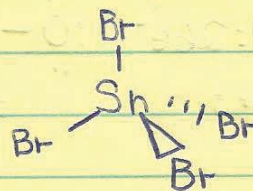 Br
Sn
Br
Br
Br